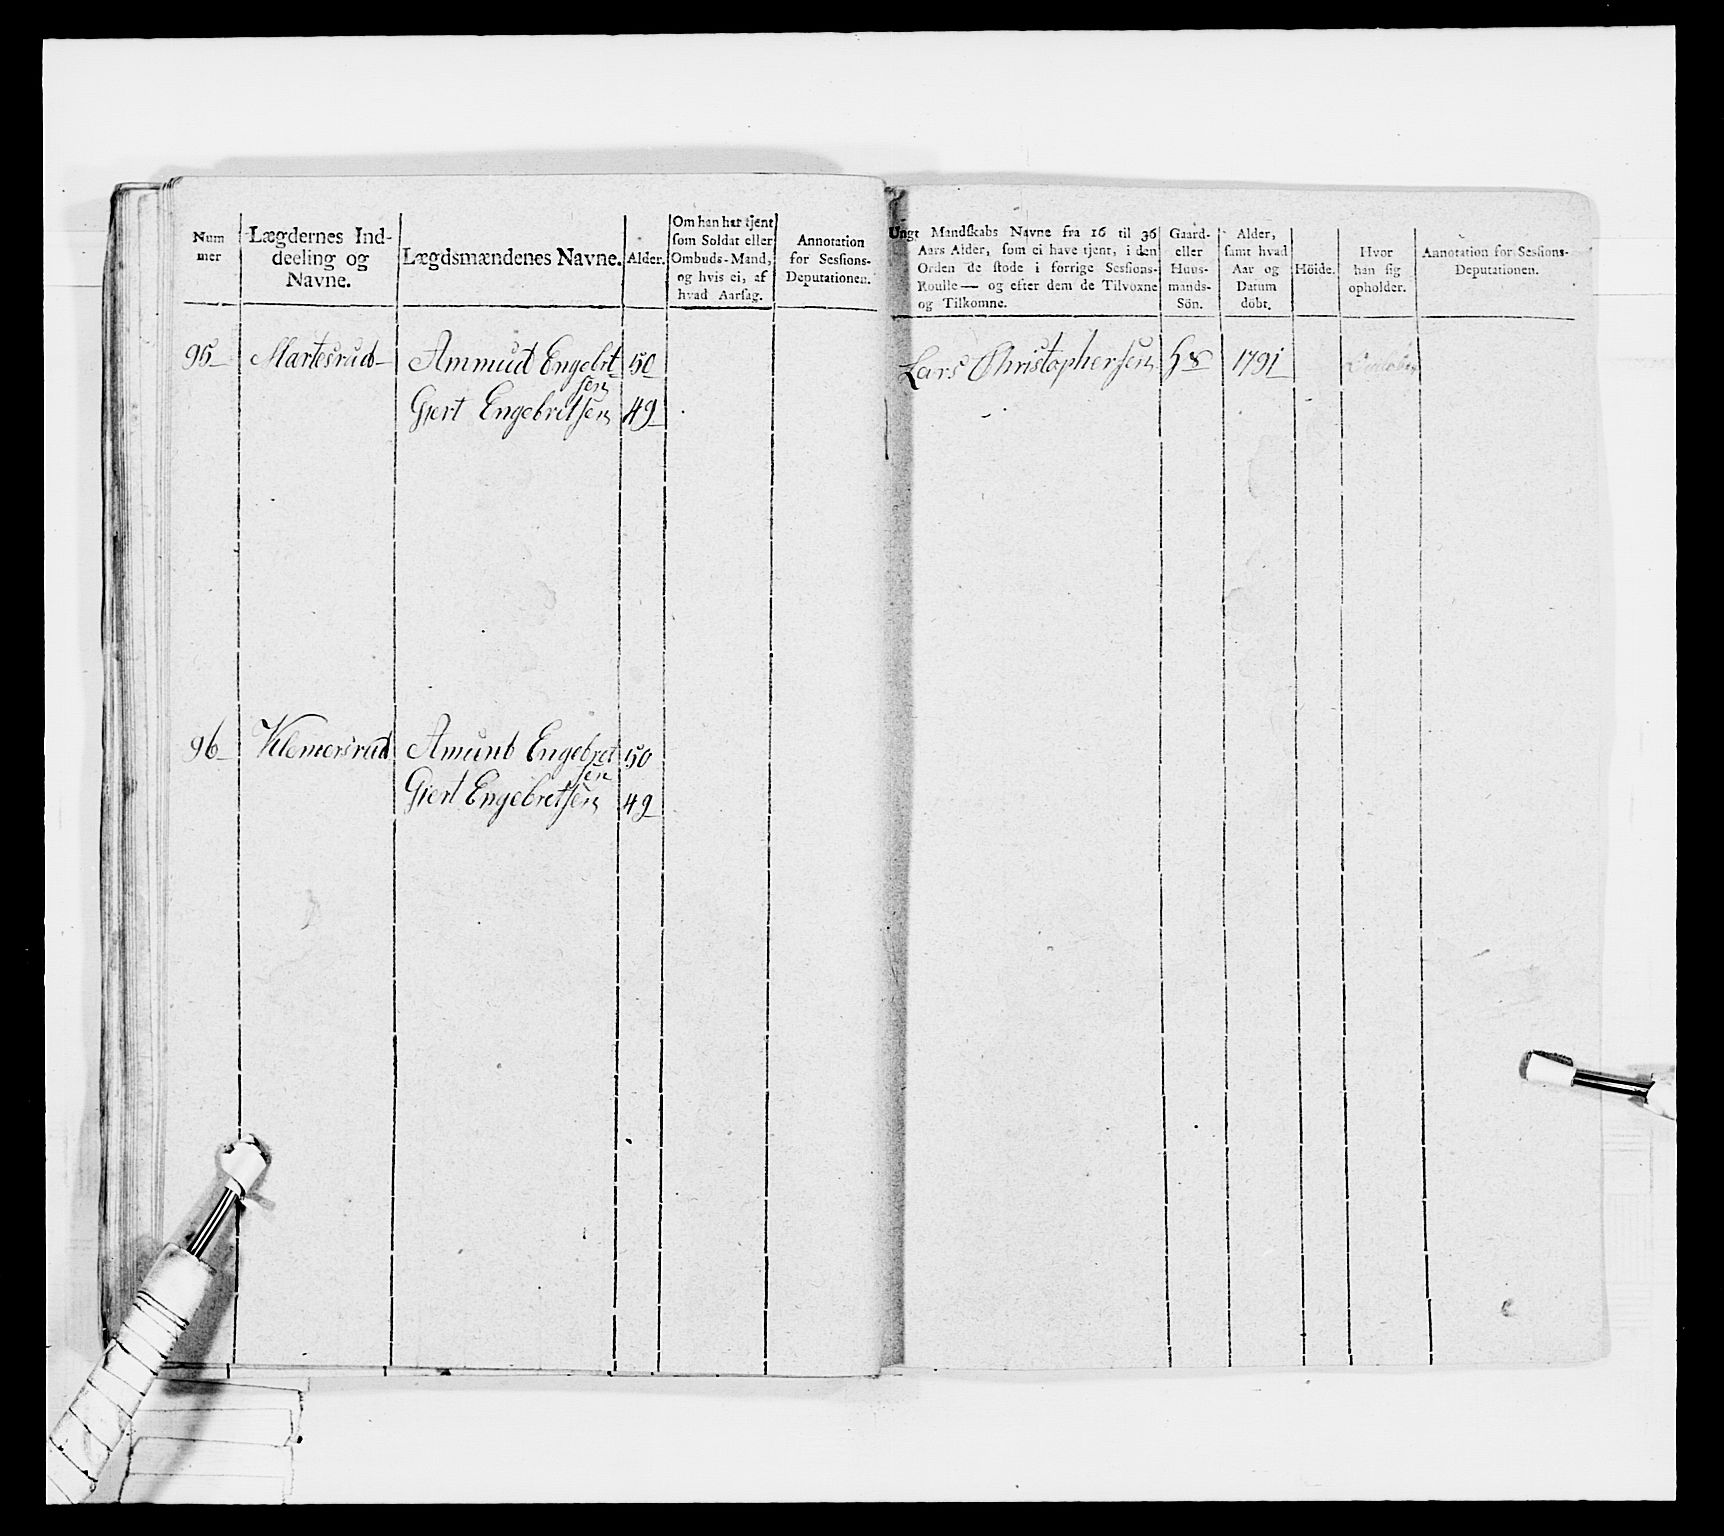 Num
mer
Lægdernes Ind-
deeling og
Navne.
Lægdsmændenes Navne.
Alder.
Om han har tjent
som Soldat eller
Ombuds-Mand,
og hvis ei, af
hvad Aarsag.
Annotation
for Sessions-
Deputationen.
Ungt Mandskabs Navne fra 16 til 36
Aars Alder, som ei have tjent, i den
Orden de stode i forrige Sessions-
Roulle— og efter dem de Tilvoxne
og Tilkomne.
Gaard-
eller
Huus-
mands-
Sön.
Alder,
samt hvad
Aar og
Datum
döbt.
Höide.
Hvor
han sig
opholder.
Annotation for Sessions-
Deputationen.
95 Martesrud Ammud Engebrt 50
sen
Giert Engebritsen 49
Lars Christophersen 1791
96 Klemersrud Amund Engebret 50
sen
Giert Engebretsen 49